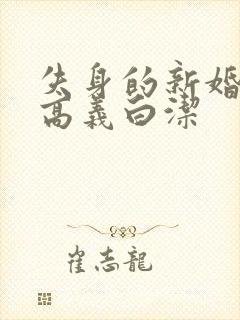 失身的新婚
高義白潔
崔志龍